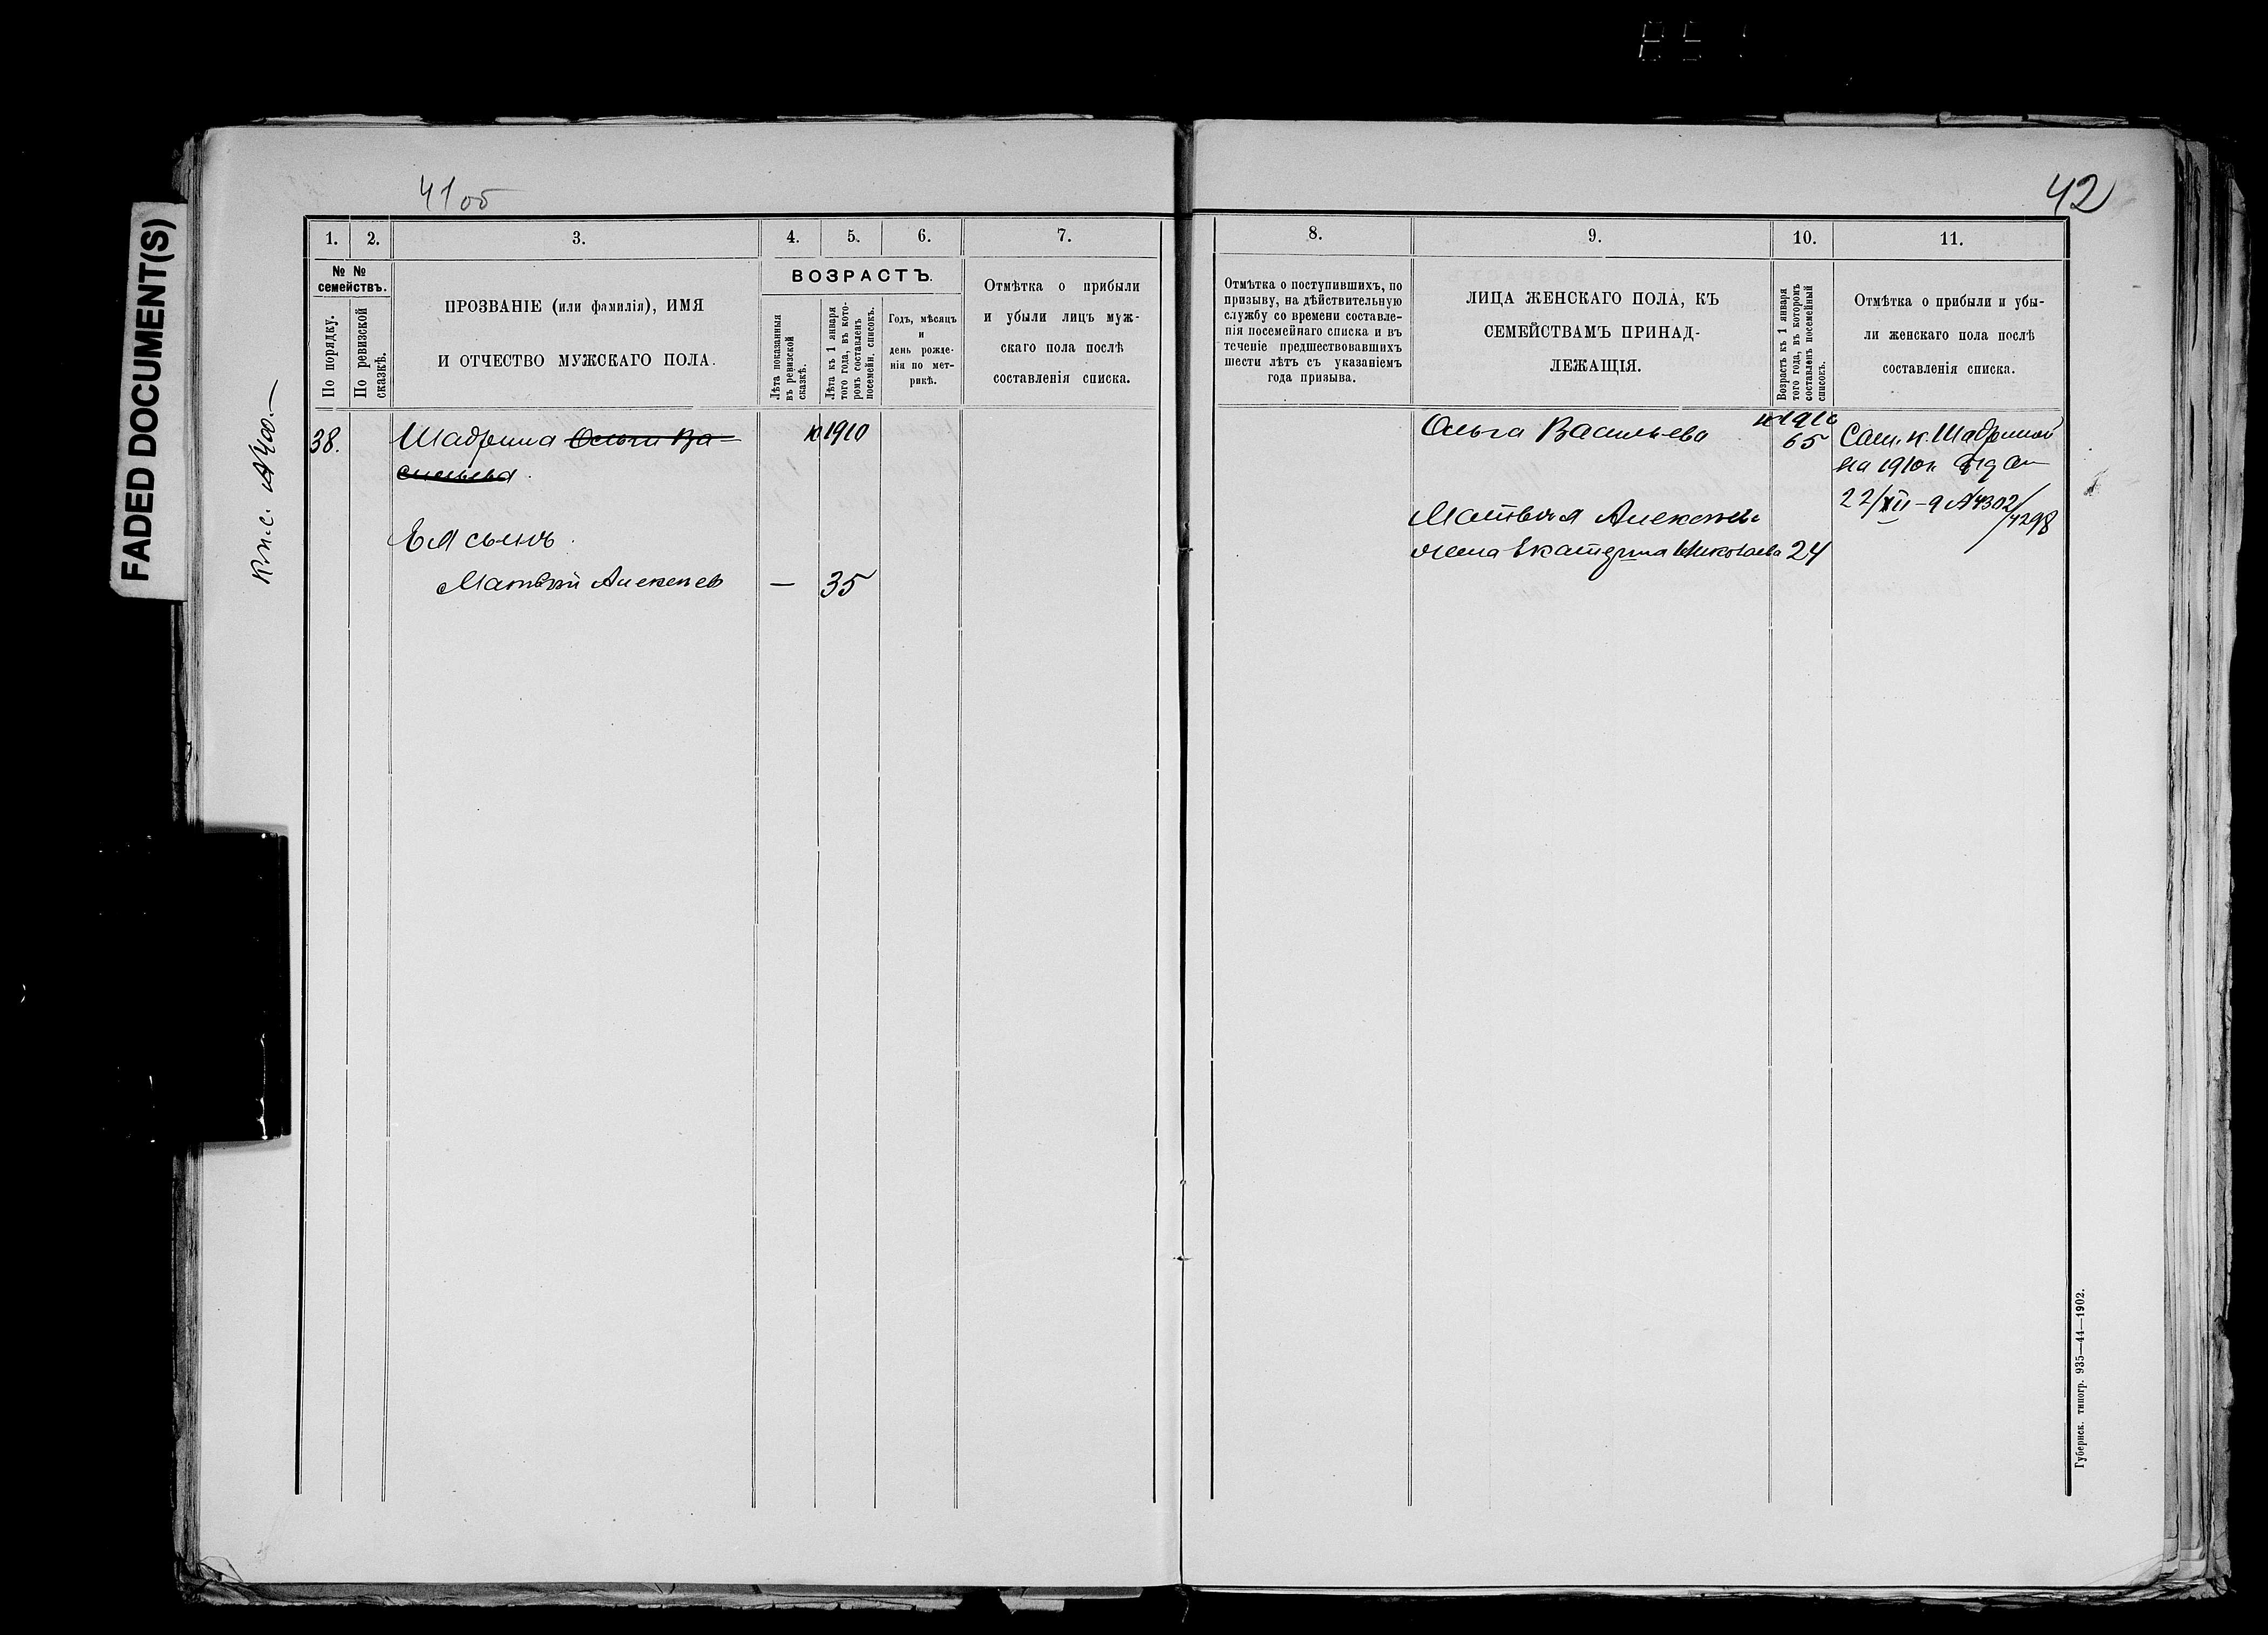 FADED DOCUMENT(S)
41об
К. п. с. № 400.—
1. 2. 3. 4. 5. 6. 7.
№ №
семействъ.
По порядку.
По ревизской
сказкѣ.
ПРОЗВАНІЕ (или фамилія), ИМЯ
И ОТЧЕСТВО МУЖСКАГО ПОЛА.
ВОЗРАСТЪ.
Лѣта показанныя
въ ревизской
сказкѣ.
Лѣта къ 1 января
того года, въ кото-
ромъ составленъ
посемейн. списокъ.
Годъ, мѣсяцъ
и
день рожде-
нія по мет-
рикѣ.
Отмѣтка о прибыли
и убыли лицъ муж-
скаго пола послѣ
составленія списка.
38. Шадрина Ольга Ва-
сильева.
к 1910
Ея сынъ
Матвѣй Алексѣевъ — 35
42
8. 9. 10. 11.
Отмѣтка о поступившихъ, по
призыву, на дѣйствительную
службу со времени составле-
нія посемейнаго списка и въ
теченіе предшествовавшихъ
шести лѣтъ съ указаніемъ
года призыва.
ЛИЦА ЖЕНСКАГО ПОЛА, КЪ
СЕМЕЙСТВАМЪ ПРИНАД-
ЛЕЖАЩІЯ.
Возрастъ къ 1 января
того года, въ которомъ
составленъ посемейный
списокъ.
Отмѣтка о прибыли и убы-
ли женскаго пола послѣ
составленія списка.
к 1910
Ольга Васильева 65
Матвѣя Алексѣева
жена Екатерина Николаева 24
к. Шадриной
на 1910 г.
22/XII-9 № 4302/4298
Губернск. типогр. 935—44—1902.